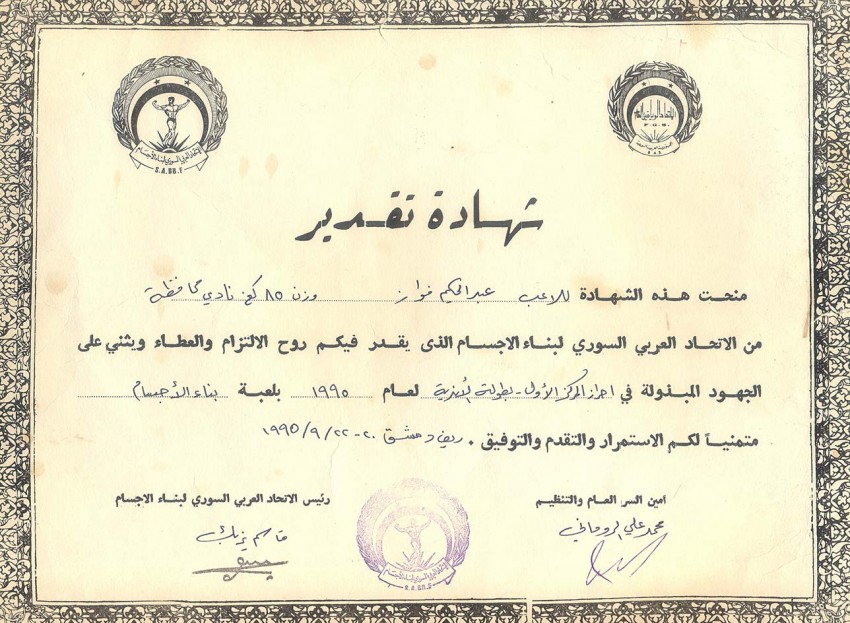 الاتحاد العربي السوري لبناء الأجسام
S.A.BB.F
شهادة تقدير
منحت هذه الشهادة للاعب عبد الحكيم فواز وزن ٨٥ كغ نادي محافظة
من الاتحاد العربي السوري لبناء الاجسام الذى يقدر فيكم روح الالتزام والعطاء ويثني على
الجهود المبذولة في احراز المركز الأول - بطولة الأندية لعام ١٩٩٥ بلعبة بناء الأجسام
متمنياً لكم الاستمرار والتقدم والتوفيق . ريف دمشق ٢٠-٢٢/٩/١٩٩٥
امين السر العام والتنظيم
محمد علي الروماني
رئيس الاتحاد العربي السوري لبناء الاجسام
قاسم يزبك
S.A.BB.F